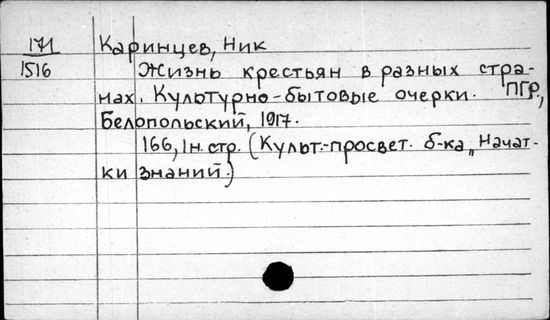 171 Каринцев, Ник
1516 Жизнь крестьян в разных стра-
нах. Культурно-бытовые очерки. ПГр,
Белопольский, 1917.
166, 1 н. стр. (Культ.-просвет. б-ка „Начат-
ки знаний.)